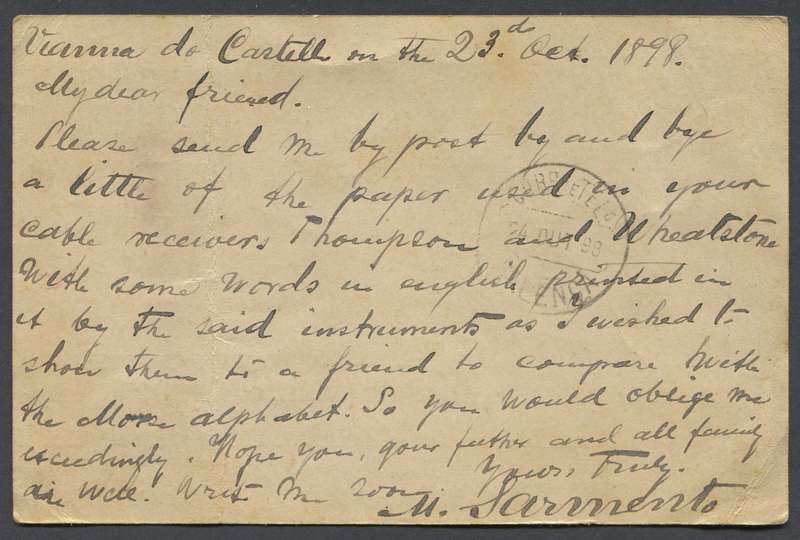 Vianna do Castello on the 23.d Oct. 1898.
My dear friend.
Please send me by post by and bye
a little of the paper used in your
cable receivers Thompson and Wheatstone
With some words in english printed in
it by the said instruments as I wished to
show them to a friend to compare with
the Morse alphabet. So you would oblige me
exceedingly. Hope you, your father and all family
are well. Write me soon.
Yours Truly.
M. Sarmento
CORRO E TELEG
24 OUT 98